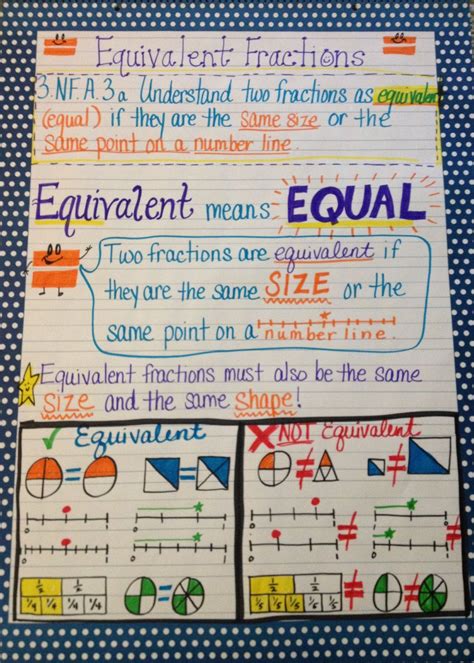 Equivalent Fractions
3.NF.A.3a Understand two fractions as equivalent
(equal) if they are the same size or the
same point on a number line.
Equivalent means EQUAL
Two fractions are equivalent if
they are the same SIZE or the
same point on a number line.
Equivalent fractions must also be the same
Size and the same Shape!
✓ Equivalent
=
=
0 1
0 1
1/2 1/2
1/4 1/4 1/4 1/4
=
X NOT Equivalent
≠
≠
≠
≠
1/2 1/2
1/5 1/5 1/5 1/5 1/5
≠
≠